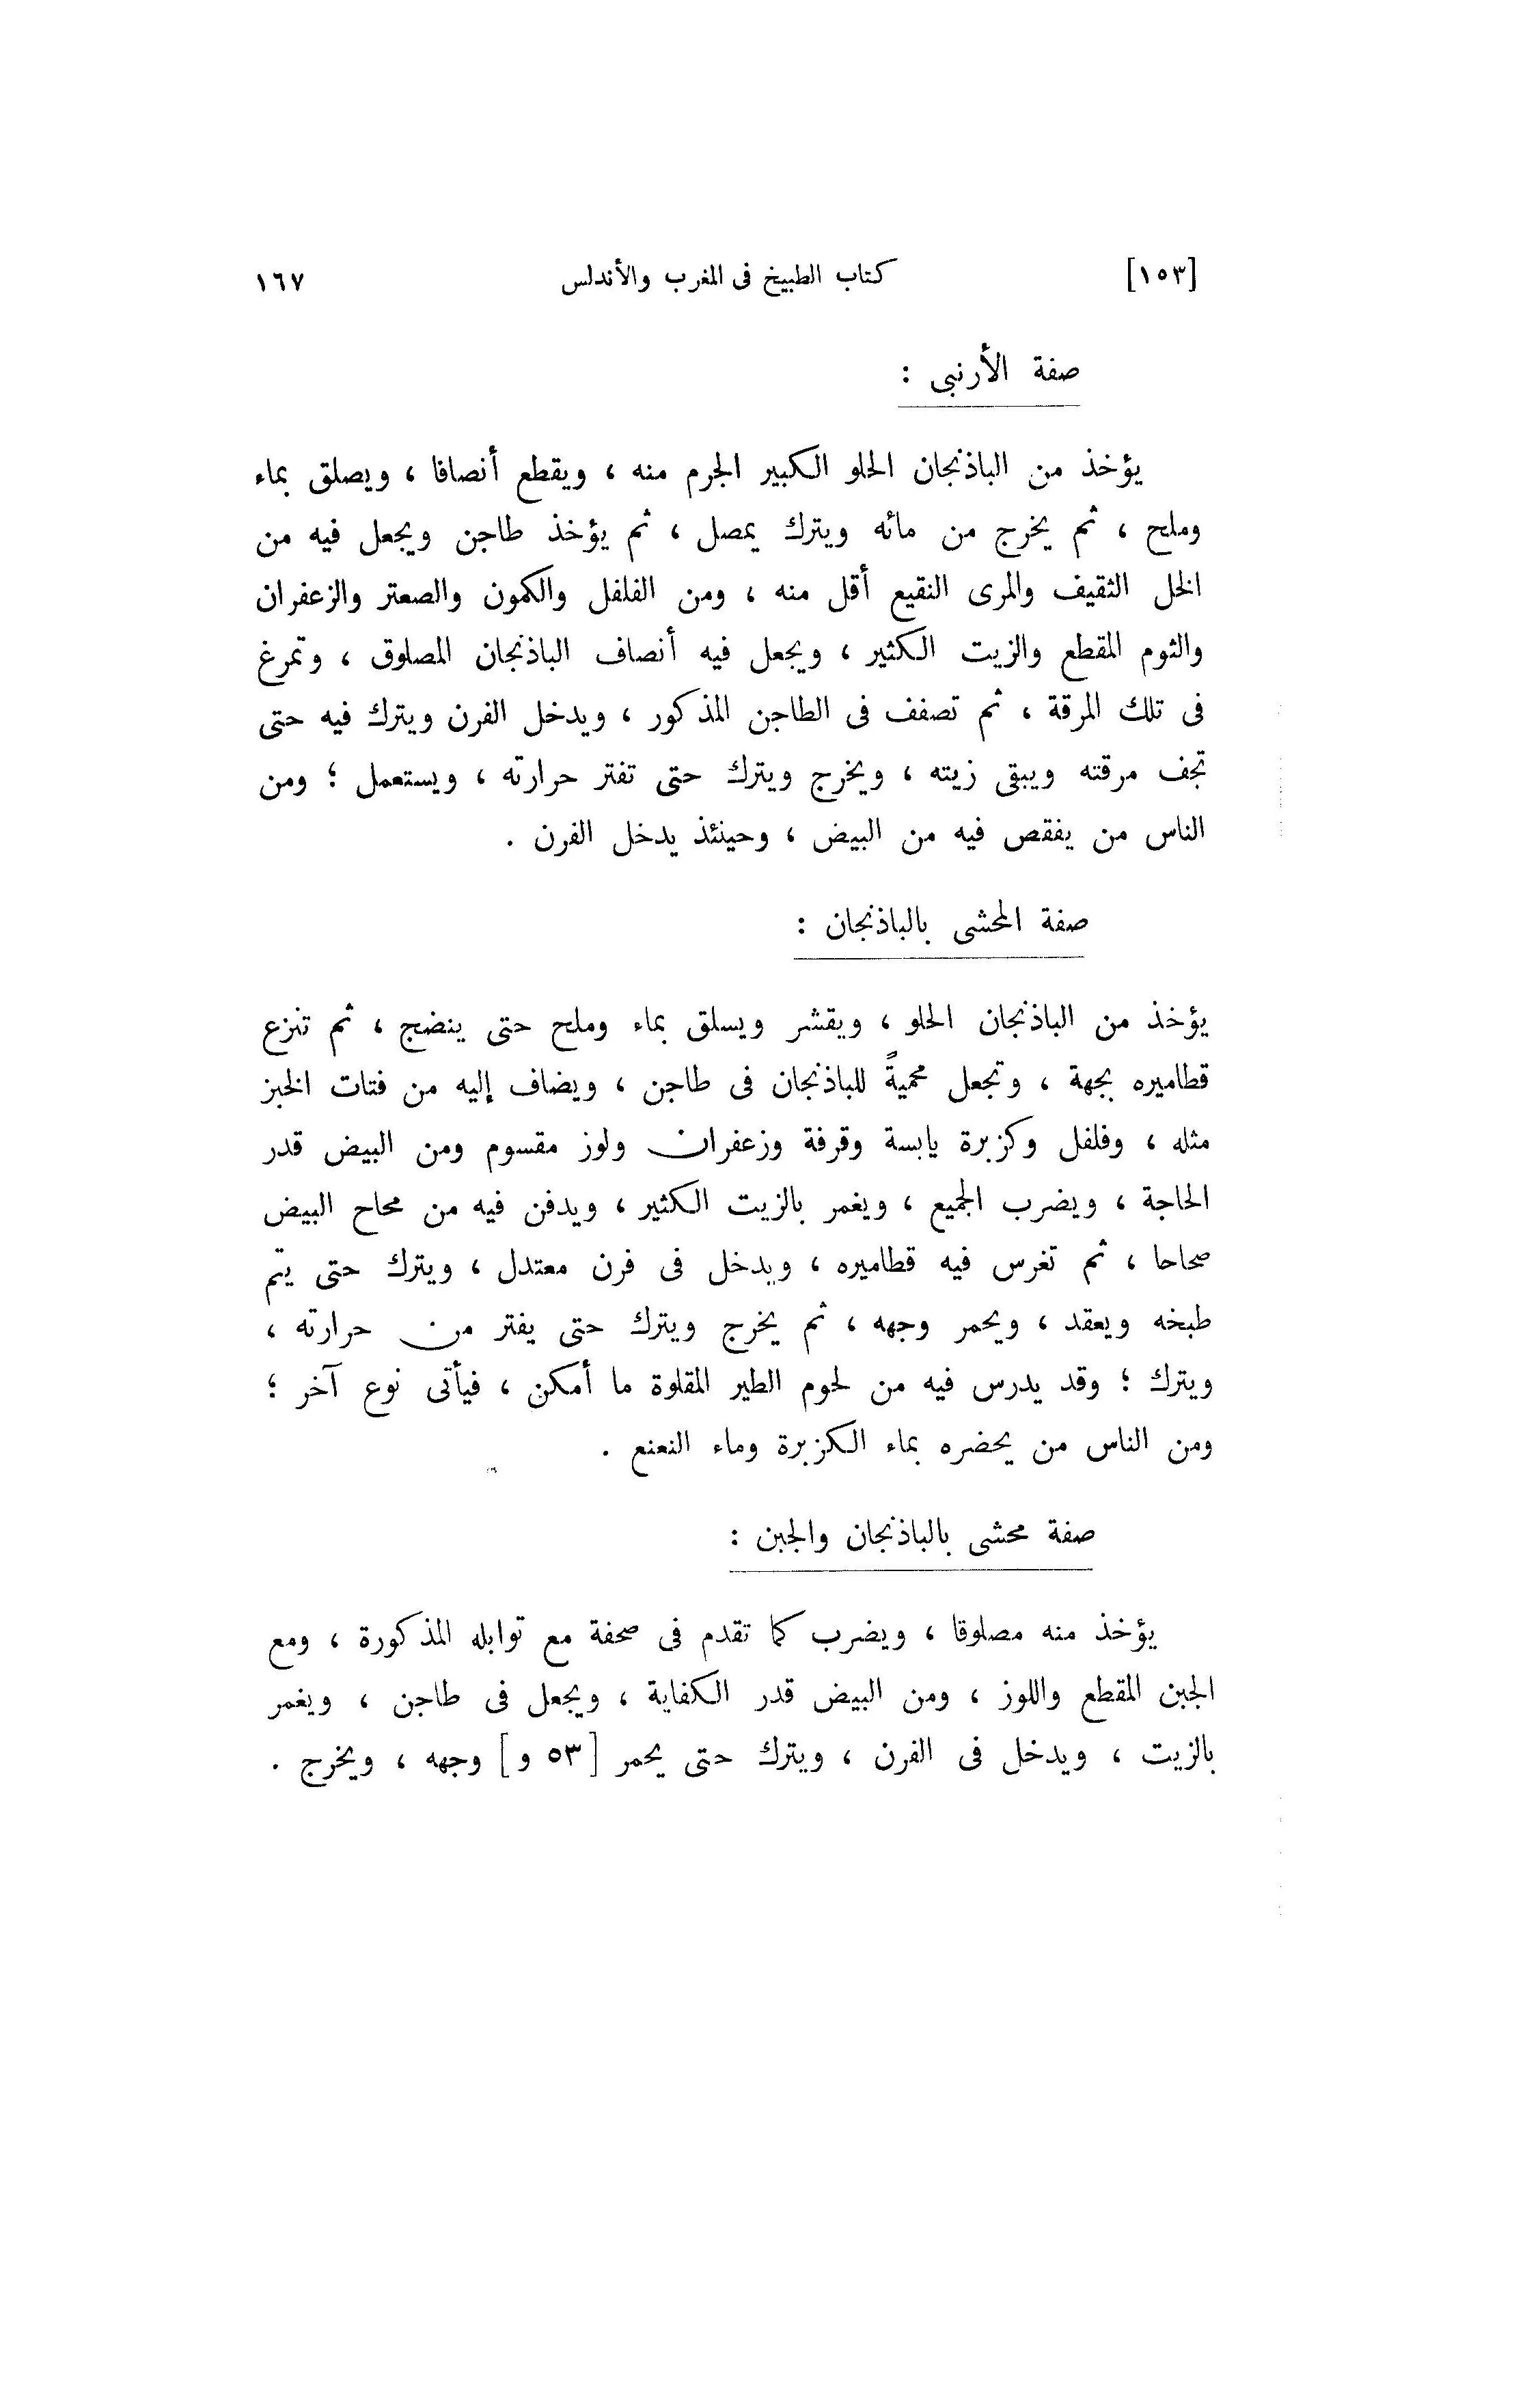 [١٥٣] كتاب الطبيخ فى المغرب والأندلس ١٦٧
صفة الأرنبى :
يؤخذ من الباذنجان الحلو الكبير الجرم منه ، ويقطع أنصافا ، ويصلق بماء
وملح ، ثم يخرج من مائه ويترك يمصل ، ثم يؤخذ طاجن ويجعل فيه من
الخل الثقيف والمرى النقيع أقل منه ، ومن الفلفل والكمون والصعتر والزعفران
والثوم المقطع والزيت الكثير ، ويجعل فيه أنصاف الباذنجان المصلوق ، وتمرغ
فى تلك المرقة ، ثم تصفف فى الطاجن المذكور ، ويدخل الفرن ويترك فيه حتى
تجف مرقته ويبقى زيته ، ويخرج ويترك حتى تفتر حرارته ، ويستعمل ؛ ومن
الناس من يفقص فيه من البيض ، وحينئذ يدخل الفرن .
صفة المحشى بالباذنجان :
يؤخذ من الباذنجان الحلو ، ويقشر ويسلق بماء وملح حتى ينضج ، ثم تنزع
قطاميره بجهة ، وتجعل محميةً للباذنجان فى طاجن ، ويضاف إليه من فتات الخبز
مثله ، وفلفل وكزبرة يابسة وقرفة وزعفران ولوز مقسوم ومن البيض قدر
الحاجة ، ويضرب الجميع ، ويغمر بالزيت الكثير ، ويدفن فيه من محاح البيض
صحاحا ، ثم تغرس فيه قطاميره ، ويدخل فى فرن معتدل ، ويترك حتى يتم
طبخه ويعقد ، ويحمر وجهه ، ثم يخرج ويترك حتى يفتر من حرارته ،
ويترك ؛ وقد يدرس فيه من لحوم الطير المقلوة ما أمكن ، فيأتى نوع آخر ؛
ومن الناس من يحضره بماء الكزبرة وماء النعنع .
صفة محشى بالباذنجان والجبن :
يؤخذ منه مصلوقا ، ويضرب كما تقدم فى صحفة مع توابله المذكورة ، ومع
الجبن المقطع واللوز ، ومن البيض قدر الكفاية ، ويجعل فى طاجن ، ويغمر
بالزيت ، ويدخل فى الفرن ، ويترك حتى يحمر [٥٣ و] وجهه ، ويخرج .